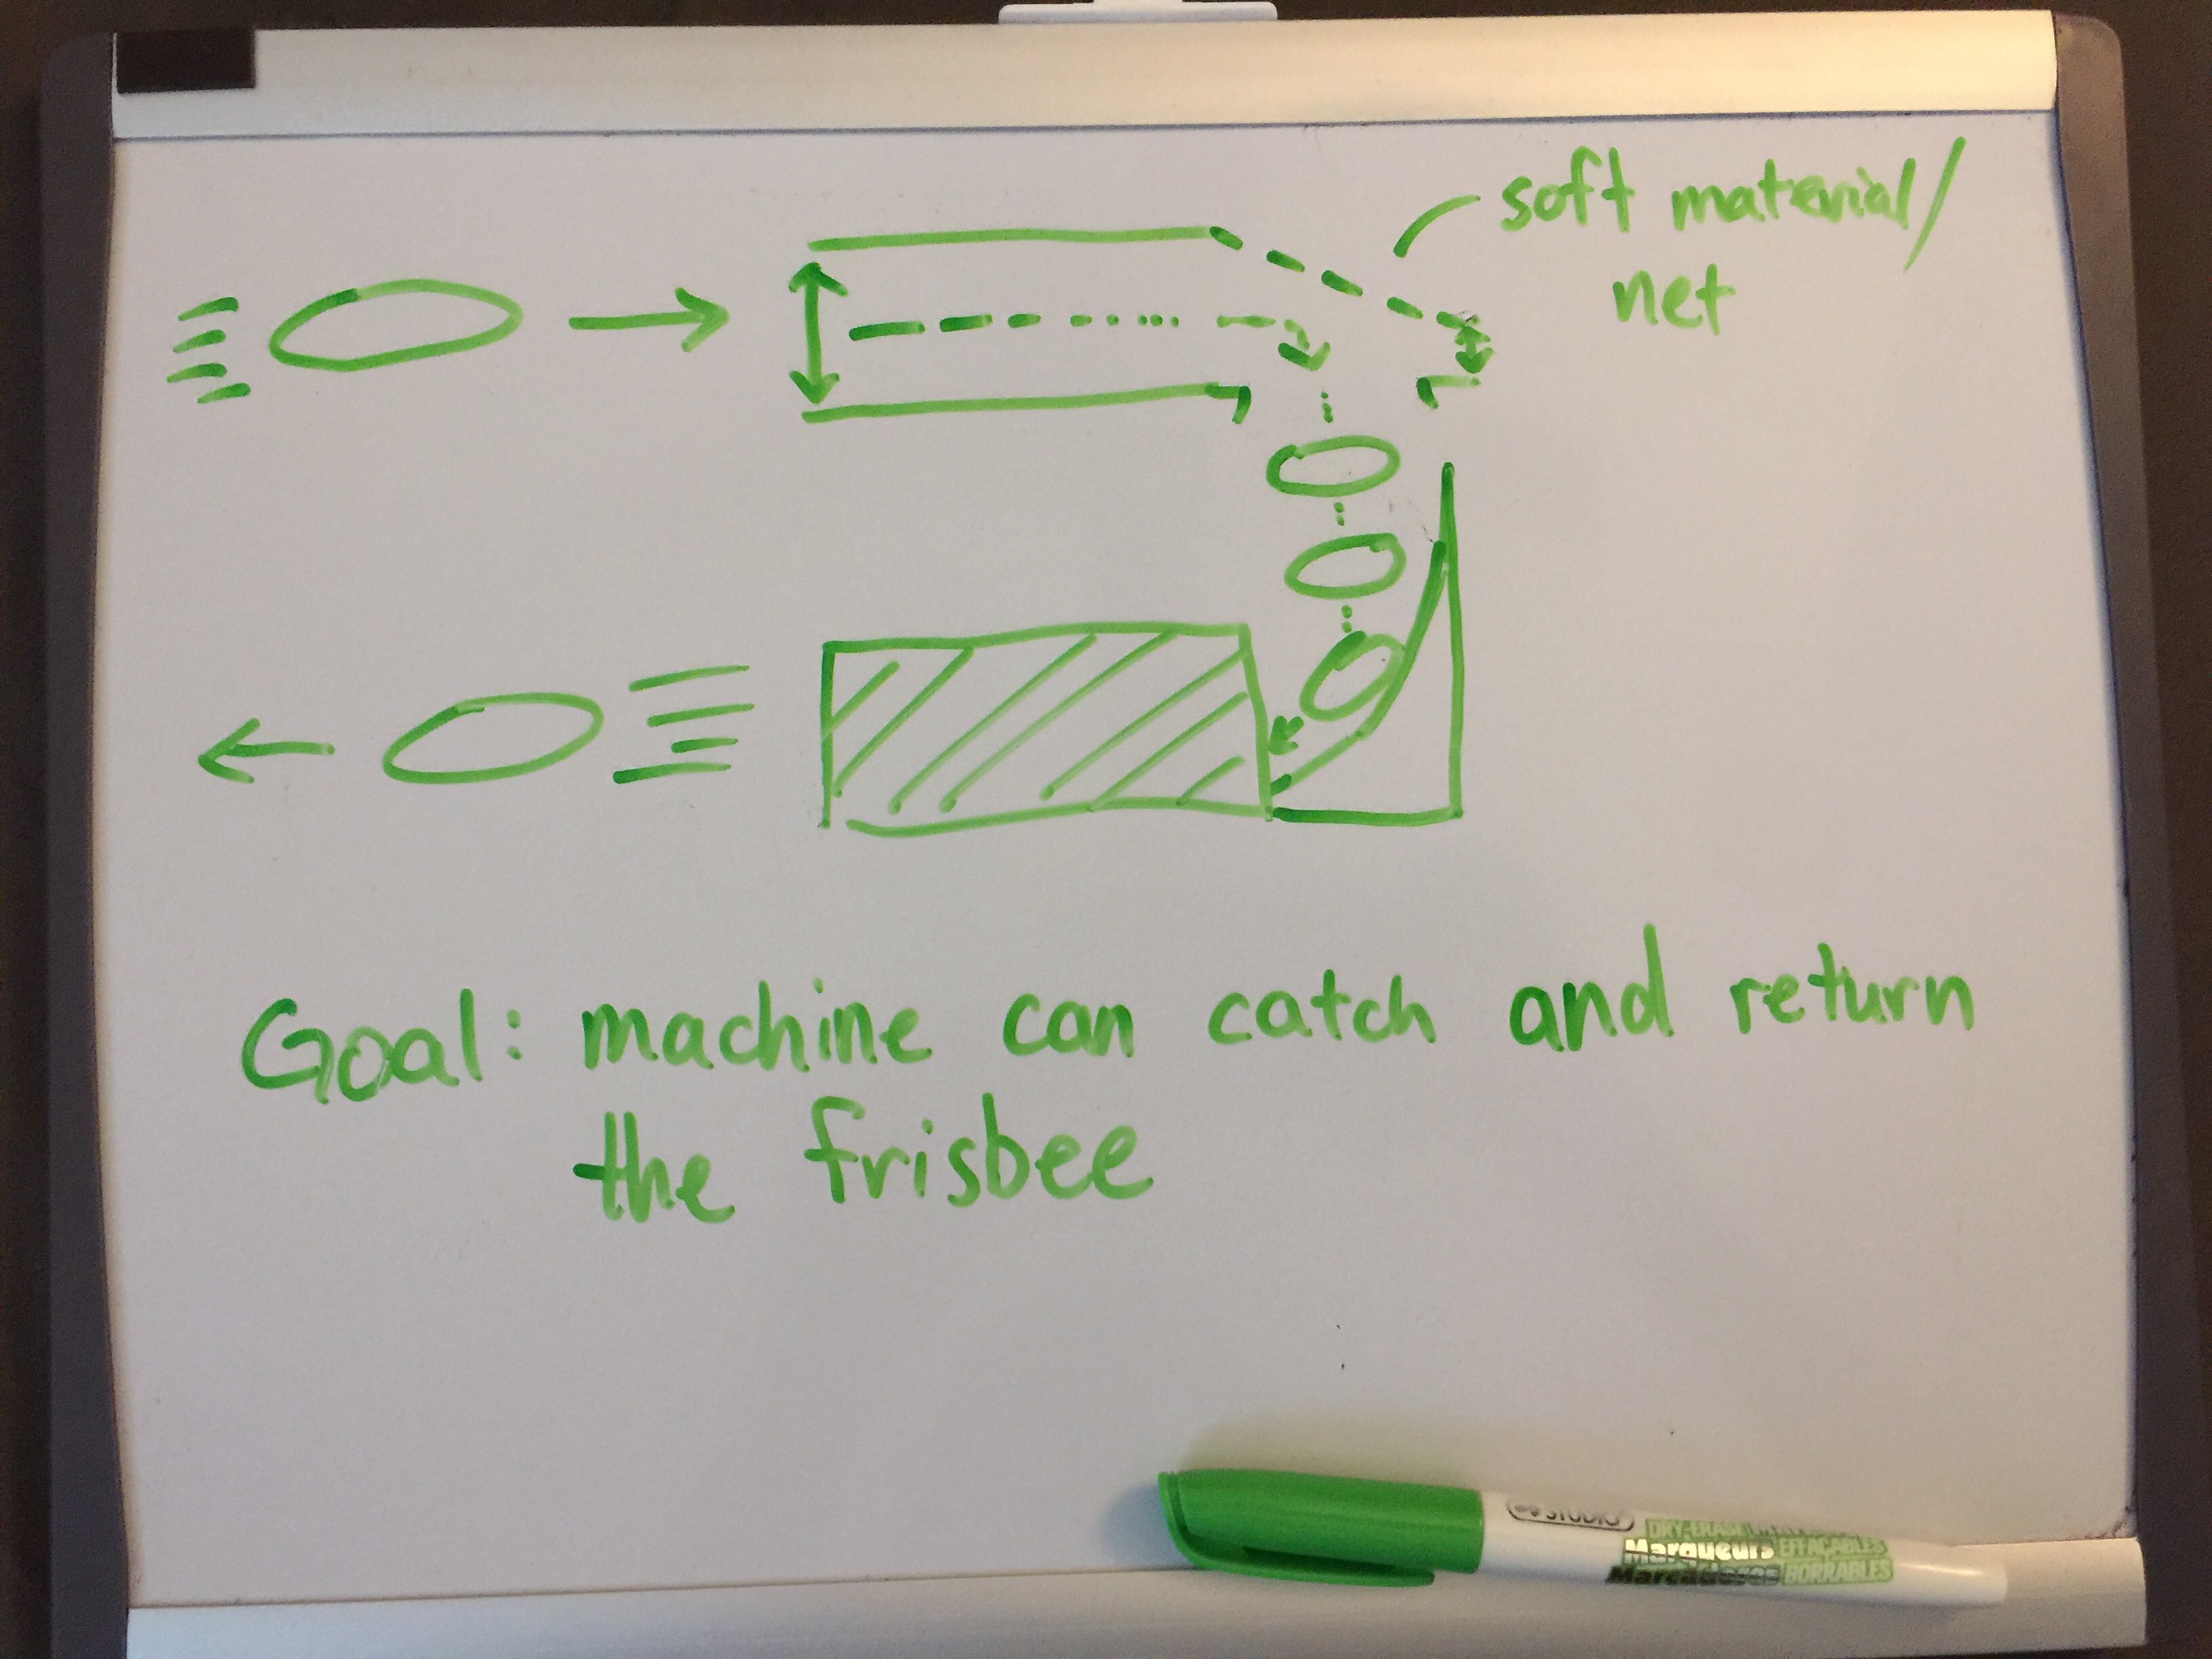 soft material/
net
Goal: machine can catch and return
the frisbee
STUDIO
DRY-ERASE
Marqueurs EFFAÇABLES
Marcadores BORRABLES